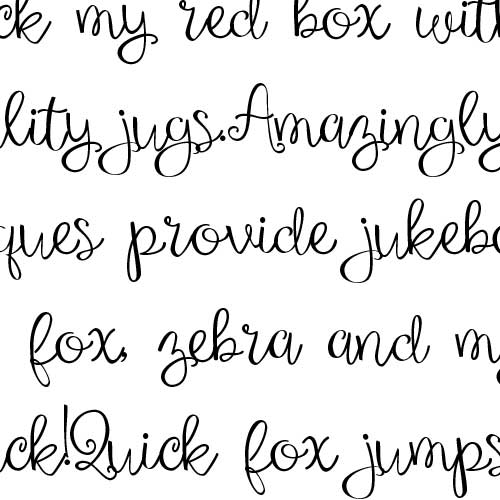 ck my red box with
lity jugs.Amazingly
ques provide jukebo
fox, zebra and my
ck!Quick fox jumps